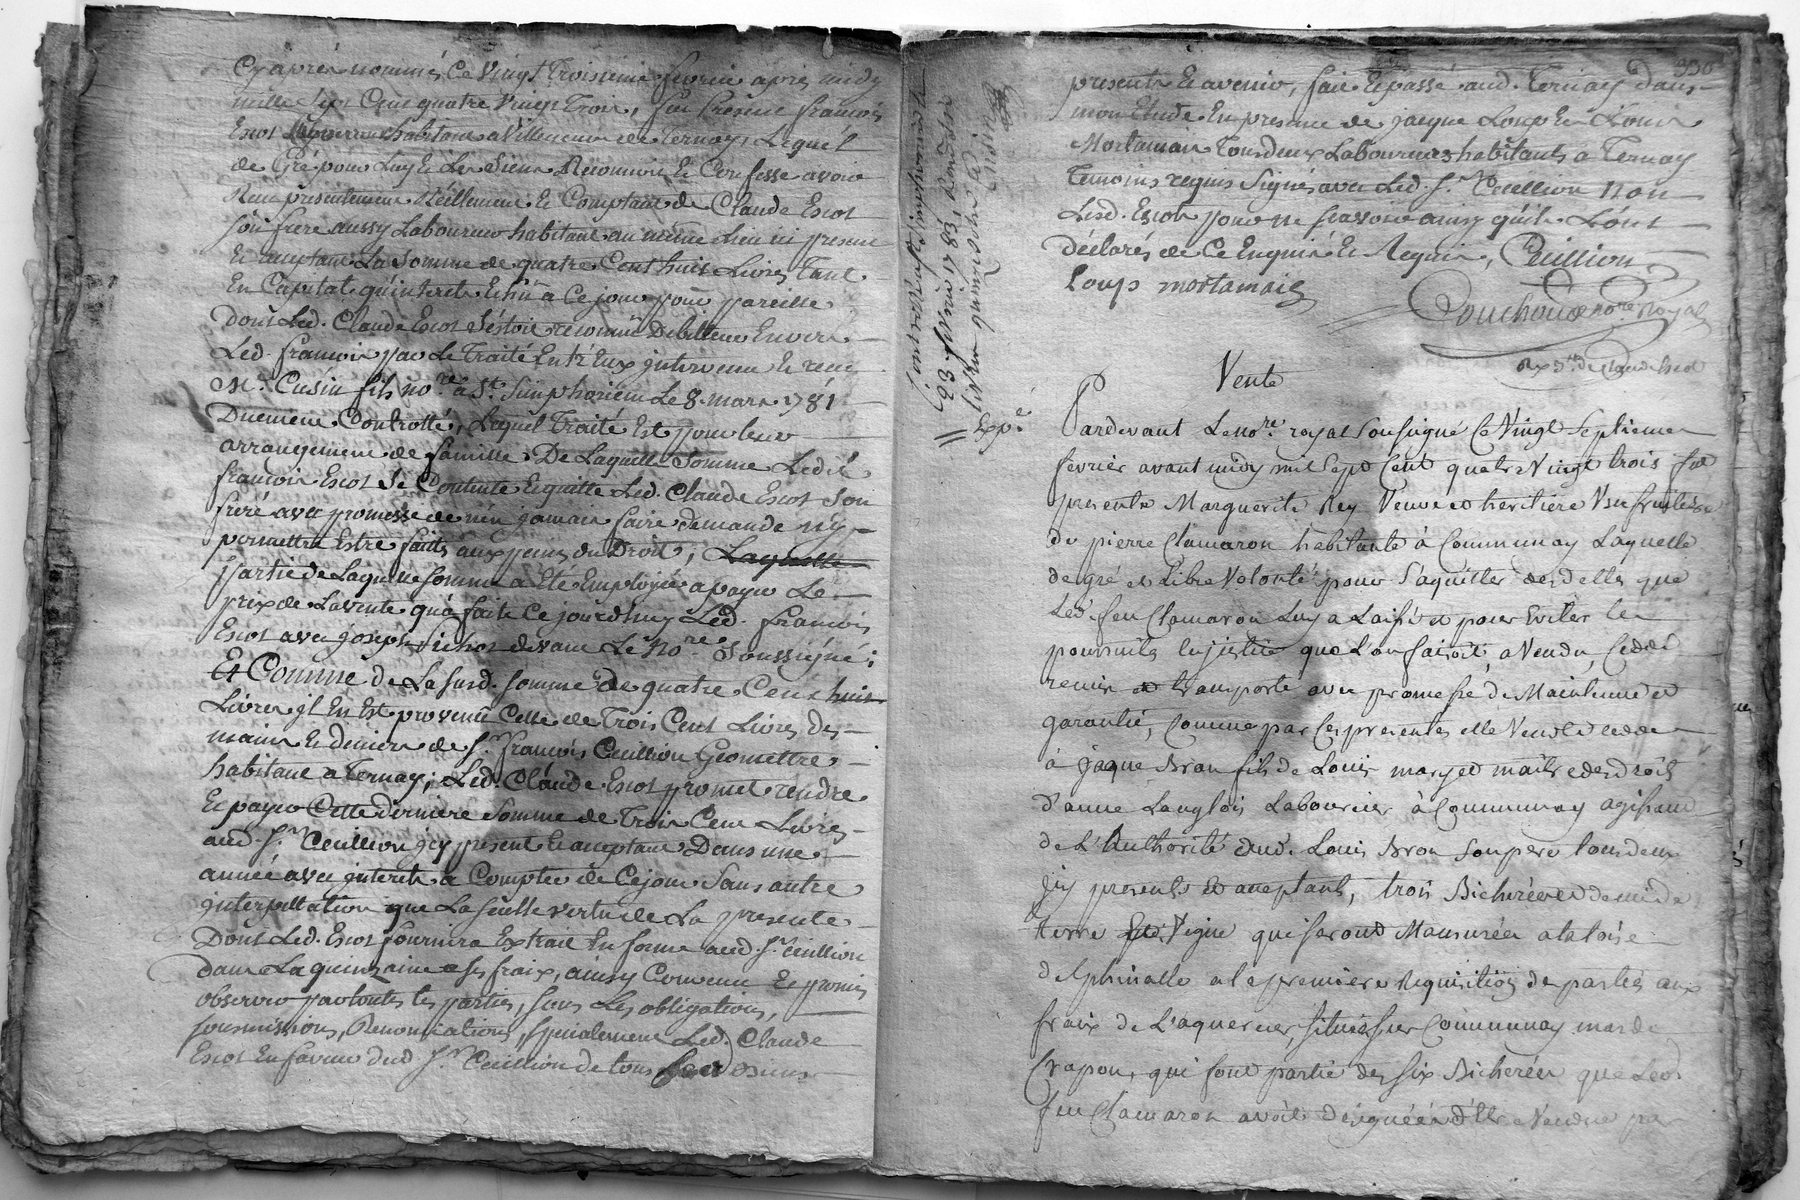 Cy après nommés, Ce vingt troisieme fevrier après midy
mille sept Cent quatre vingt trois, fut présent françois
Escot Laboureur habitant a Villeneuve de Ternay, Lequel
de Gré pour Luy et Les siens Reconnoit et Confesse avoir
Receu presentement Réellement et Comptant de Claude Escot
son frere aussy Laboureur habitant au même Lieu ici present
et acceptant La somme de quatre Cent huit Livres, tant
En Capital qu'interets à Ce jour pour pareille
Dont Led. Claude Escot s'étoit reconnu Debitteur Envers
Led. françois par Le Traité Entr'Eux intervenu Et receu
Me. Cusin fils nore. à St. Simphorien Le 8. mars 1781
Duement Controllé, Lequel Traité Est pour leur
arrangement de famille. De Laquelle somme Ledit
françois Escot se Contente Et quitte Led. Claude Escot son
frere avec promesse de n'en jamais faire demande n'y
permettre Estre faitte aux peines du Droit; Laquelle
partie de Laquelle somme a Été Employée a payer Le
prix de La vente qu'a faite Ce jourd'huy Led. françois
Escot avec joseph devant Le Nore. soussigné;
Et Comme de La susd. somme de quatre Cent huit
Livres il En Est provenu Celle de Trois Cent Livres des
mains Et deniers de Sr. françois Cuillion Geomettre
habitant a Ternay; Led. Claude Escot promet rendre
Et payer Cette derniere somme de Trois Cent Livres
aud. Sr. Cuillion icy present Et acceptant Dans une
année avec interets a Compter de Ce jour sans autre
interpellation que La seulle vertu de La presente
Dont Led. Escot fournira Extrait En forme aud. Sr. Cuillion
dans La quinzaine a ses fraix, ainsy Convenu Et promis
observer par toutes les parties, sous Les obligations,
soumissions, Renonciations, specialement Led. Claude
Escot En faveur dud. Sr. Cuillion de tous ses biens
presents Et avenir, fait Et passé aud. Ternay dans
mon Etude En presence de jacque Loup Et Louis
Mortamais Tous deux Laboureurs habitants a Ternay
Temoins requis signés avec Led. Sr. Cuillion non
Lesd. Escot pour ne sçavoir ainsy qu'ils L'ont
Déclarés de Ce Enquis Et Requis, Cuillion
Loup mortamais
Couchoud nore. Royal
Controllé a St. simphorien
23 fevrier 1783 Reçu
Cusin
Expé.
Vente
Pardevant Le nore. royal soussigné Ce Vingt septieme
fevrier avant midy mil sept Cent quatre Vingt trois fut
presente Marguerite Rey Veuve et heritiere Usufruitiere
de pierre Clamaron habitante à Communay Laquelle
de gré et Libre Volonté pour s'aquitter des dettes que
Led. feu Clamaron Luy a Laissé et pour Eviter les
poursuites en justice que L'on faisoit, a Vendu, Ceddé
remis et transporté avec promesse de Maintenue et
garantie, Comme par Ces presentes elle Vend et cedde
à jaque Bron fils de Louis mary et maitre des droits
d'anne Langlois Laboureur à Communay agissant
de L'Authorité dud. Louis Bron son pere tous deux
Icy presents et acceptants, trois Bicherées et demi de
terre Et Vigne qui seront Mansurées a la toise
delphinalle a la premiere Requisition des parties aux
fraix de L'aquereur, situés sur Communay mas de
Crapon, qui font partie des six Bicherées que Led.
feu Clamaron avoit designées d'Etre Vendue par